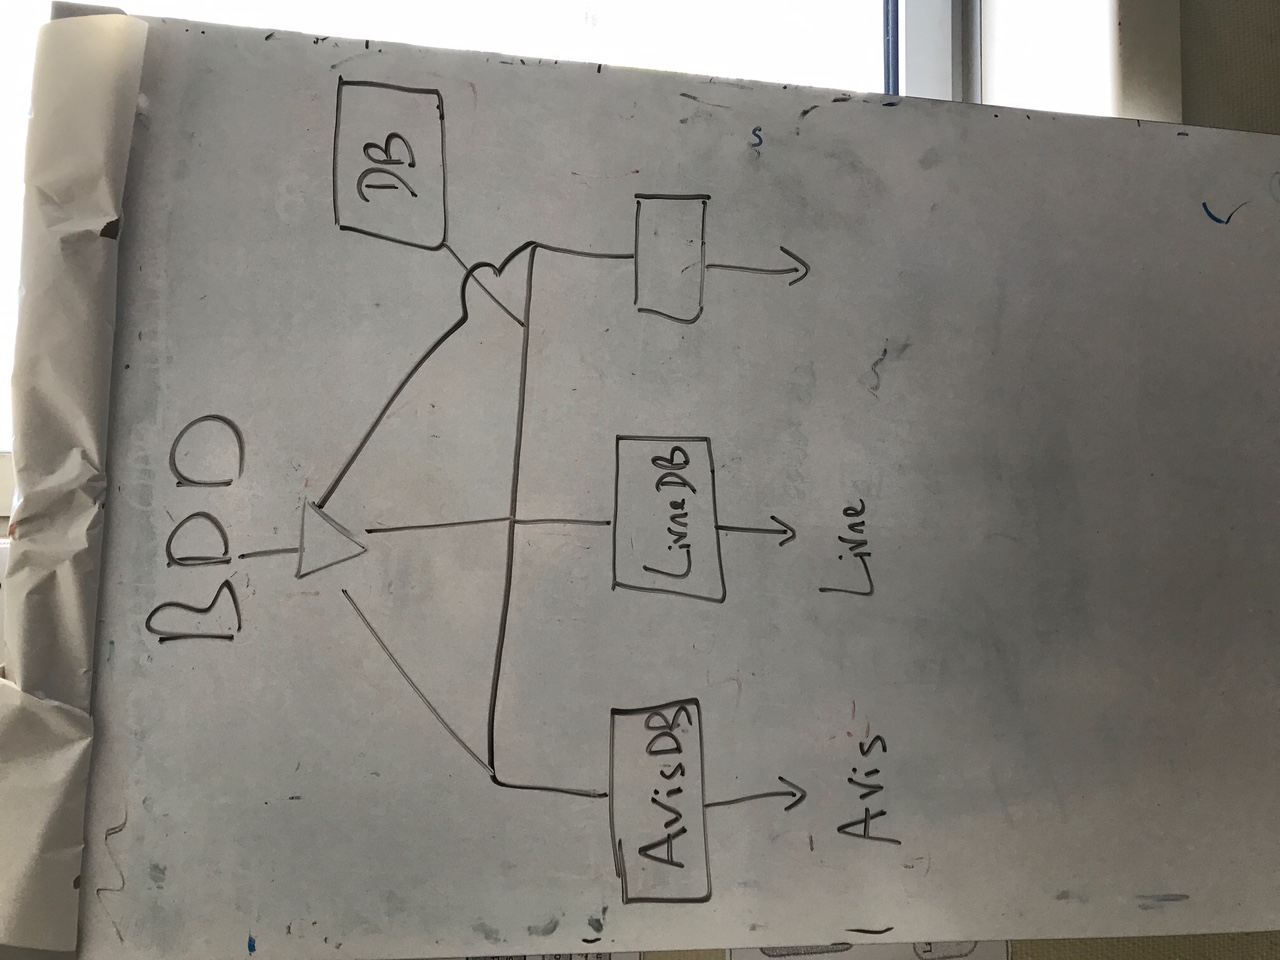 BDD
DB
AvisDB
LivreDB
Avis
Livre